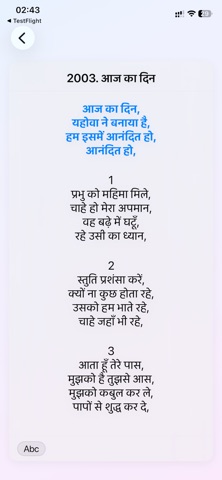 02:43
◀ TestFlight
2003. आज का दिन
आज का दिन,
यहोवा ने बनाया है,
हम इसमें आनंदित हो,
आनंदित हो,
1
प्रभु को महिमा मिले,
चाहे हो मेरा अपमान,
वह बढ़े में घटूँ,
रहे उसी का ध्यान,
2
स्तुति प्रशंसा करें,
क्यों ना कुछ होता रहे,
उसको हम भाते रहे,
चाहे जहाँ भी रहे,
3
आता हूँ तेरे पास,
मुझको है तुझसे आस,
मुझको कबुल कर ले,
पापों से शुद्ध कर दे,
Abc